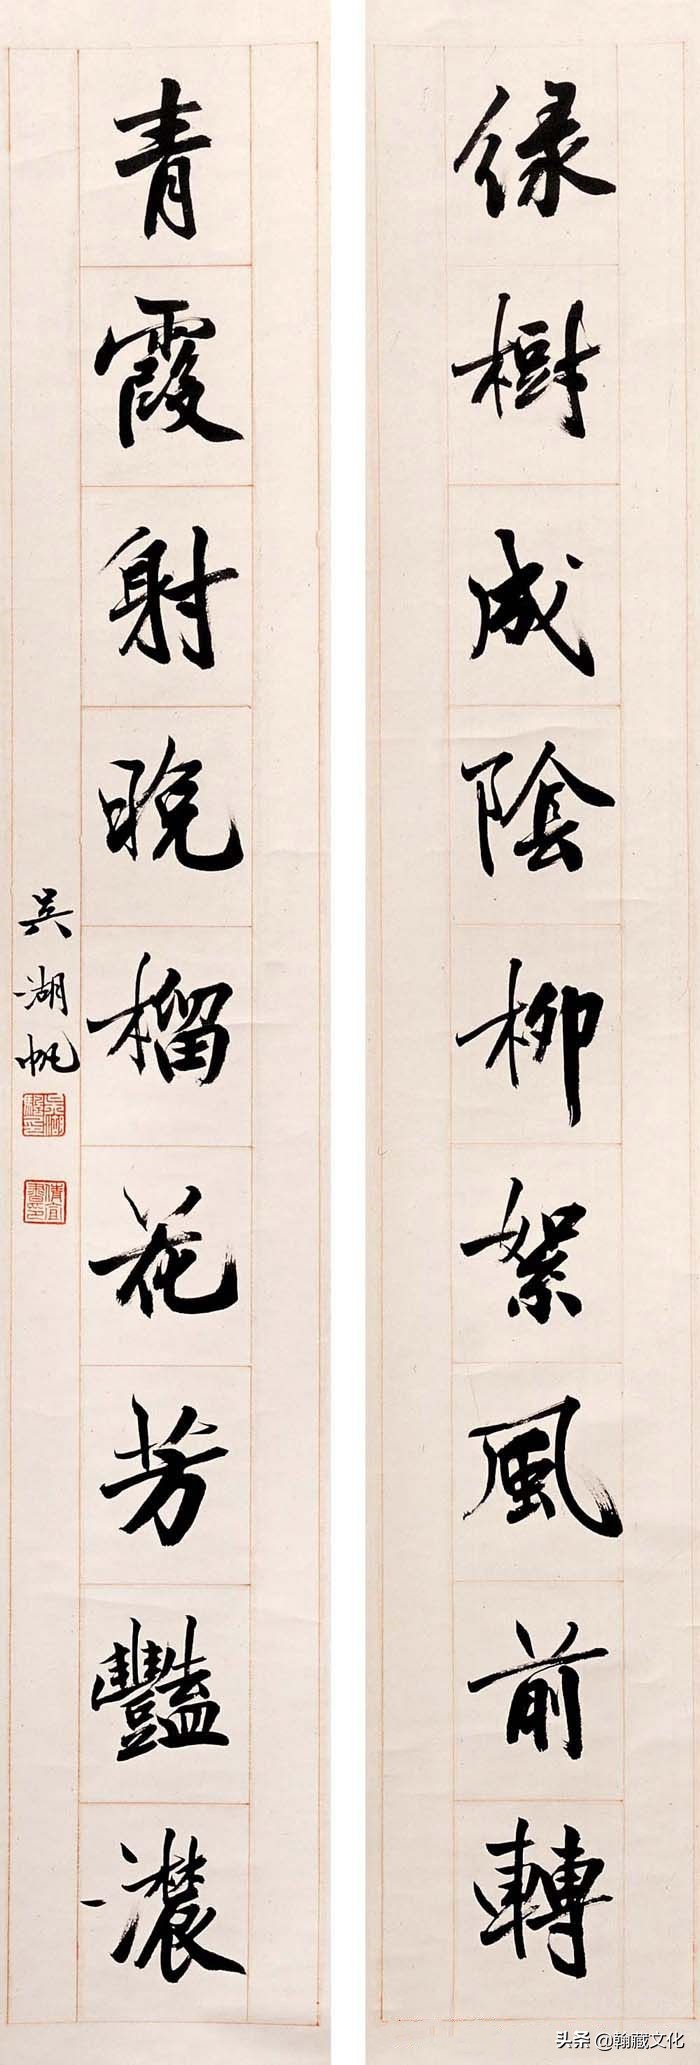 緑樹成陰柳絮風前轉
青霞射晚榴花芳豔濃
吳湖帆
头条 @翰藏文化